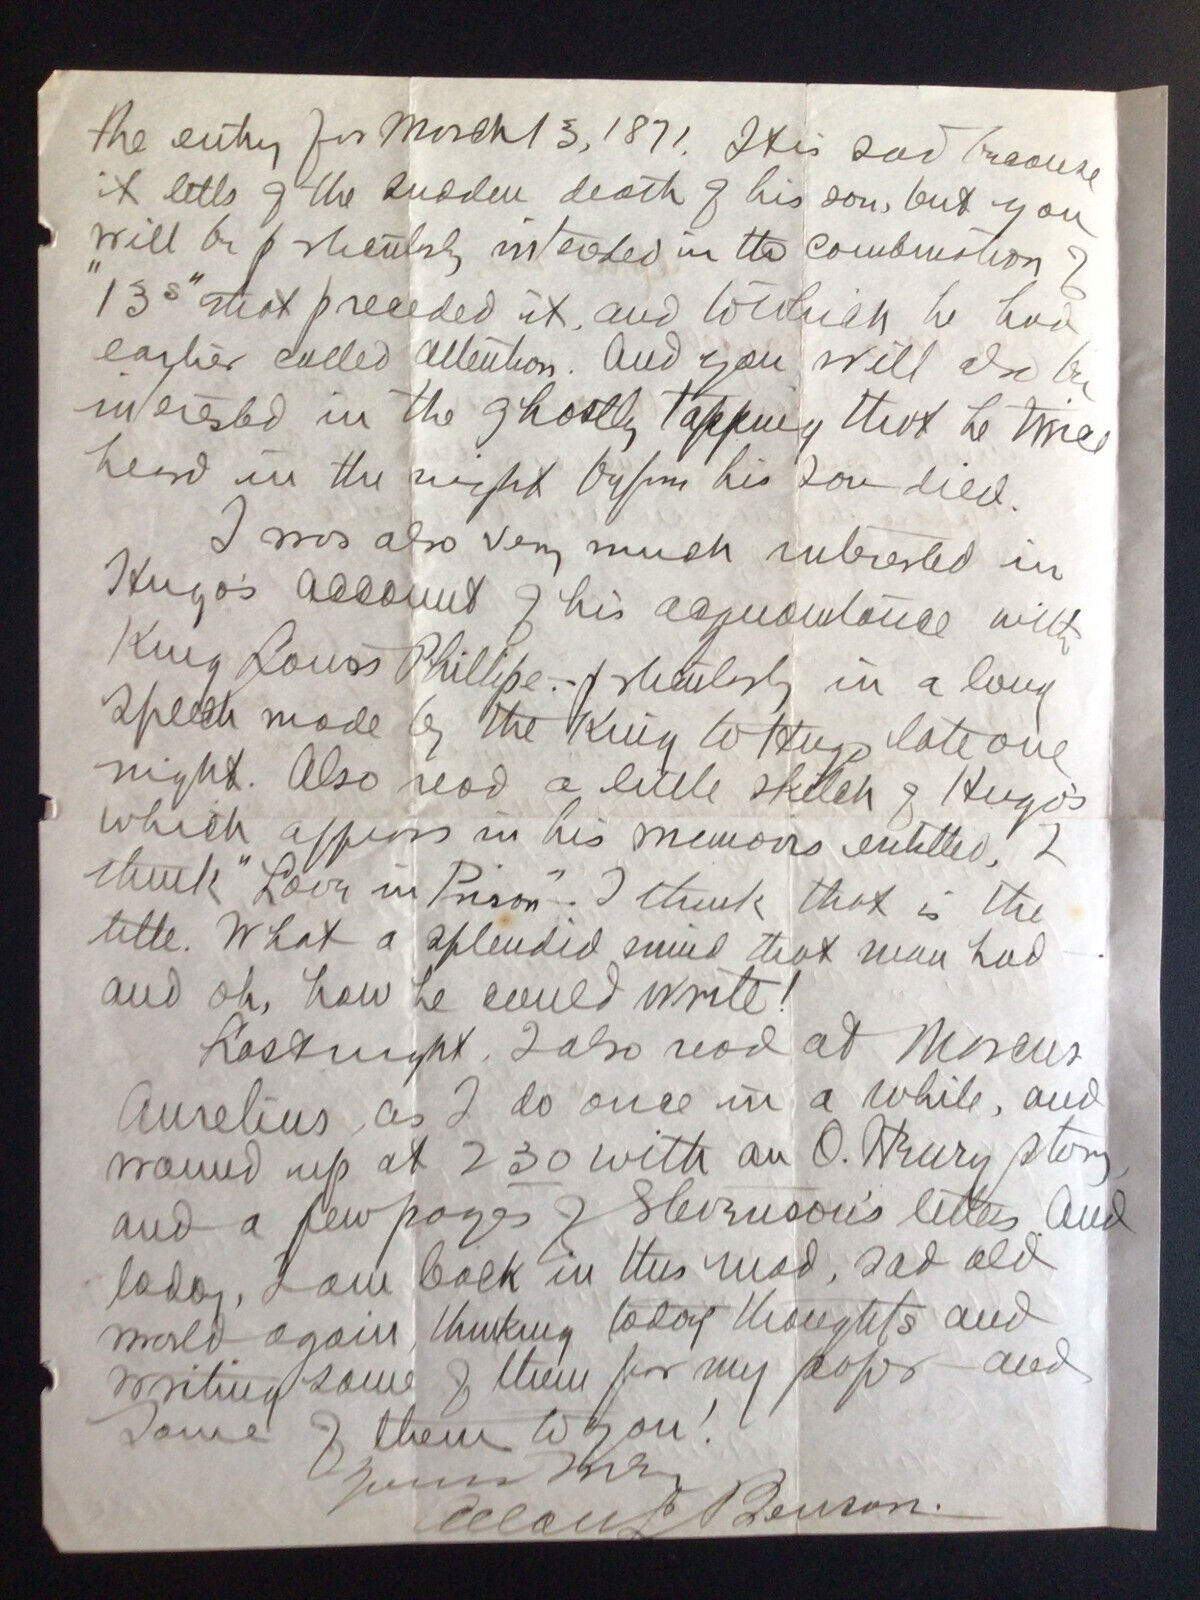 the entry for March 13, 1871. It is sad because
it tells of the sudden death of his son, but you
will be particularly interested in the combination of
"13s" that preceded it, and to which he had
earlier called attention. And you will also be
interested in the ghostly tapping that he twice
heard in the night before his son died.
I was also very much interested in
Hugo's account of his acquaintance with
King Louis Phillipe - particularly in a long
speech made by the King to Hugo late one
night. Also read a little sketch of Hugo's
which appears in his memoirs entitled, I
think "Love in Prison". I think that is the
title. What a splendid mind that man had -
and oh, how he could write!
Last night, I also read at Marcus
Aurelius, as I do once in a while, and
wound up at 2 30 with an O. Henry story,
and a few pages of Stevenson's letters. And
today, I am back in this mad, sad old
world again, thinking today thoughts and
writing some of them for my paper - and
some of them to you!
Yours truly
Allan L Benson.